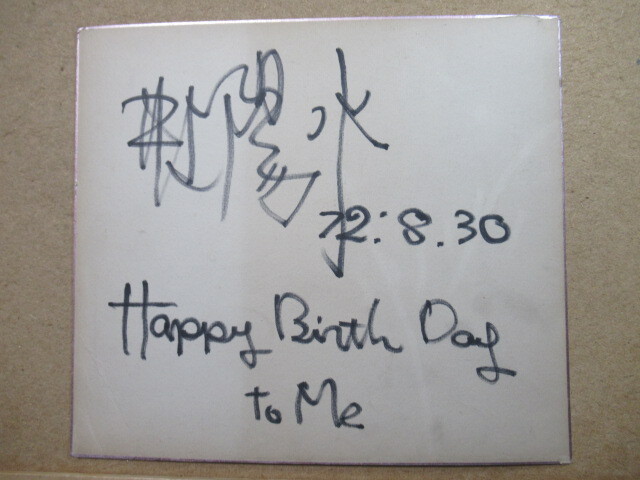 井上陽水
72.8.30
Happy Birth Day
to Me